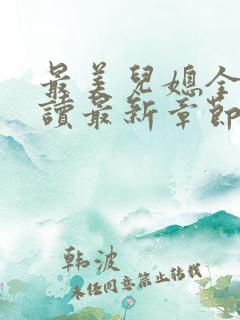 最美兒媳全
讀最新章節
韩波
未经同意禁止转载